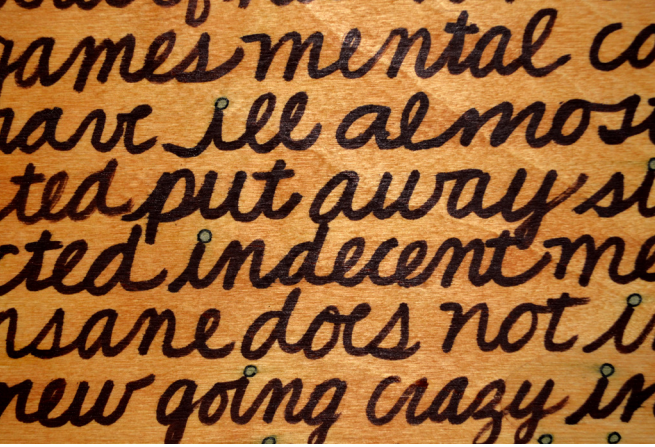 games mental co
have ill almost
ted put away si
cted indecent me
nsane does not in
new going crazy in